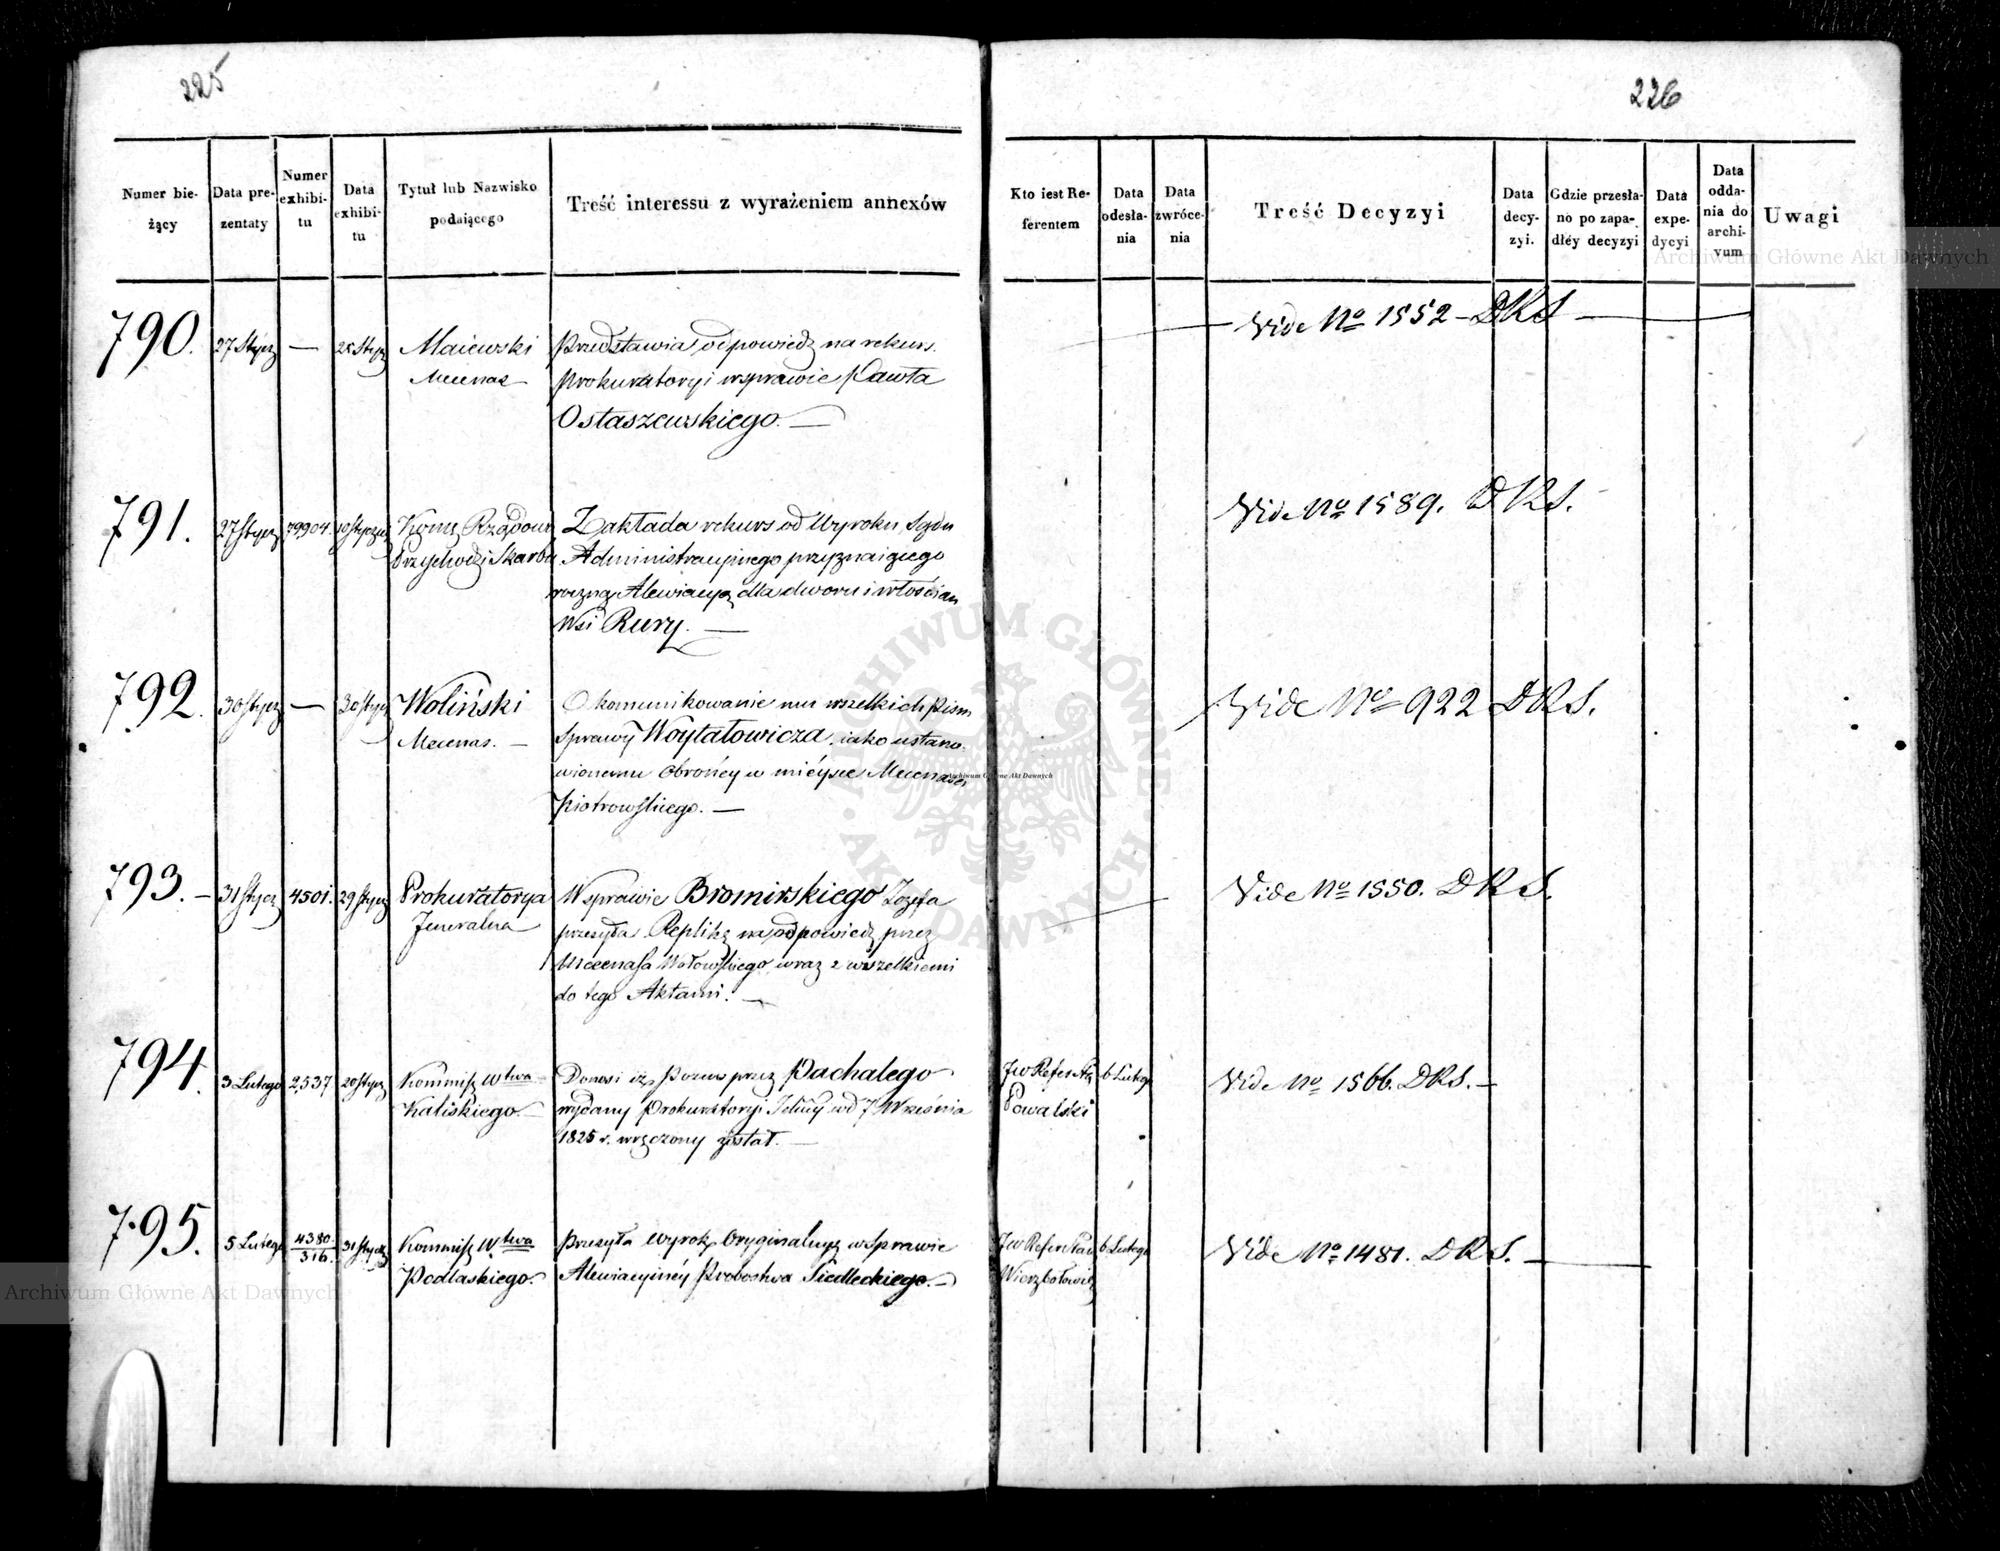 225
Numer bie-
żący
Data pre-
zentaty
Numer
exhibi-
tu
Data
exhibi-
tu
Tytuł lub Nazwisko
podaiącego
Treść interessu z wyrażeniem annexów
790. 27 Stycz — 25 Stycz
Maiewski
Mecenas
Przedstawia odpowiedz na rekurs
Prokuratoryi w sprawie Pawła
Ostaszewskiego. —
791. 27 Stycz 79904. 10 Stycznia
Komis Rządowa
Przychod: i Skarbu
Zakłada rekurs od Wyroku Sądu
Administracyinego przyznaiącego
roczną Alewiacyą dla dworu i włościan
Wsi Rury. —
792. 30 Stycz — 30 Stycz
Woliński
Mecenas. —
O komunikowanie mu wszelkich Pism
Sprawy Woytatowicza, iako ustano-
wionemu Obrońcy w mieysce Mecenasa
Piotrowskiego. —
793. — 31 Stycz 4501. 29 Stycz
Prokuratorya
Jeneralna
W sprawie Bromirskiego Jozefa
przesyła Replikę na odpowiedz przez
Mecenasa Wołowskiego wraz z wszelkiemi
do tego Aktami. —
794. 3 Lutego 2,537 20 Stycz
Kommiss Wtwa
Kaliskiego. —
Donosi iż Pozew przez Pachalego
wydany Prokuratoryi Jelney w d 7 Września
1825 r. wręczony został. —
795. 5 Lutego 4380/316. 31 Stycz
Kommiss Wtwa
Podlaskiego.
Przesyła Wyrok Oryginalny w Sprawie
Alewiacyiney Probostwa Siedleckiego. —
226
Kto iest Re-
ferentem
Data
odesła-
nia
Data
zwróce-
nia
Treść Decyzyi
Data
decy-
zyi.
Gdzie przesła-
no po zapa-
dłéy decyzyi
Data
expe-
dycyi
Data
odda-
nia do
archi-
vum
Uwagi
Vide No 1552 — DKS
Vide No 1589. DKS.
Vide No 922 DKS.
Vide No 1550. DKS.
JW Referenta
Powalski
6 Lutego
Vide No 1566. DKS. —
JW Referenta
Wierzbołowicz
6 Lutego
Vide No 1481. DKS. —
Archiwum Główne Akt Dawnych
Archiwum Główne Akt Dawnych
Archiwum Główne Akt Dawnych
ARCHIWUM GŁÓWNE · AKT DAWNYCH ·